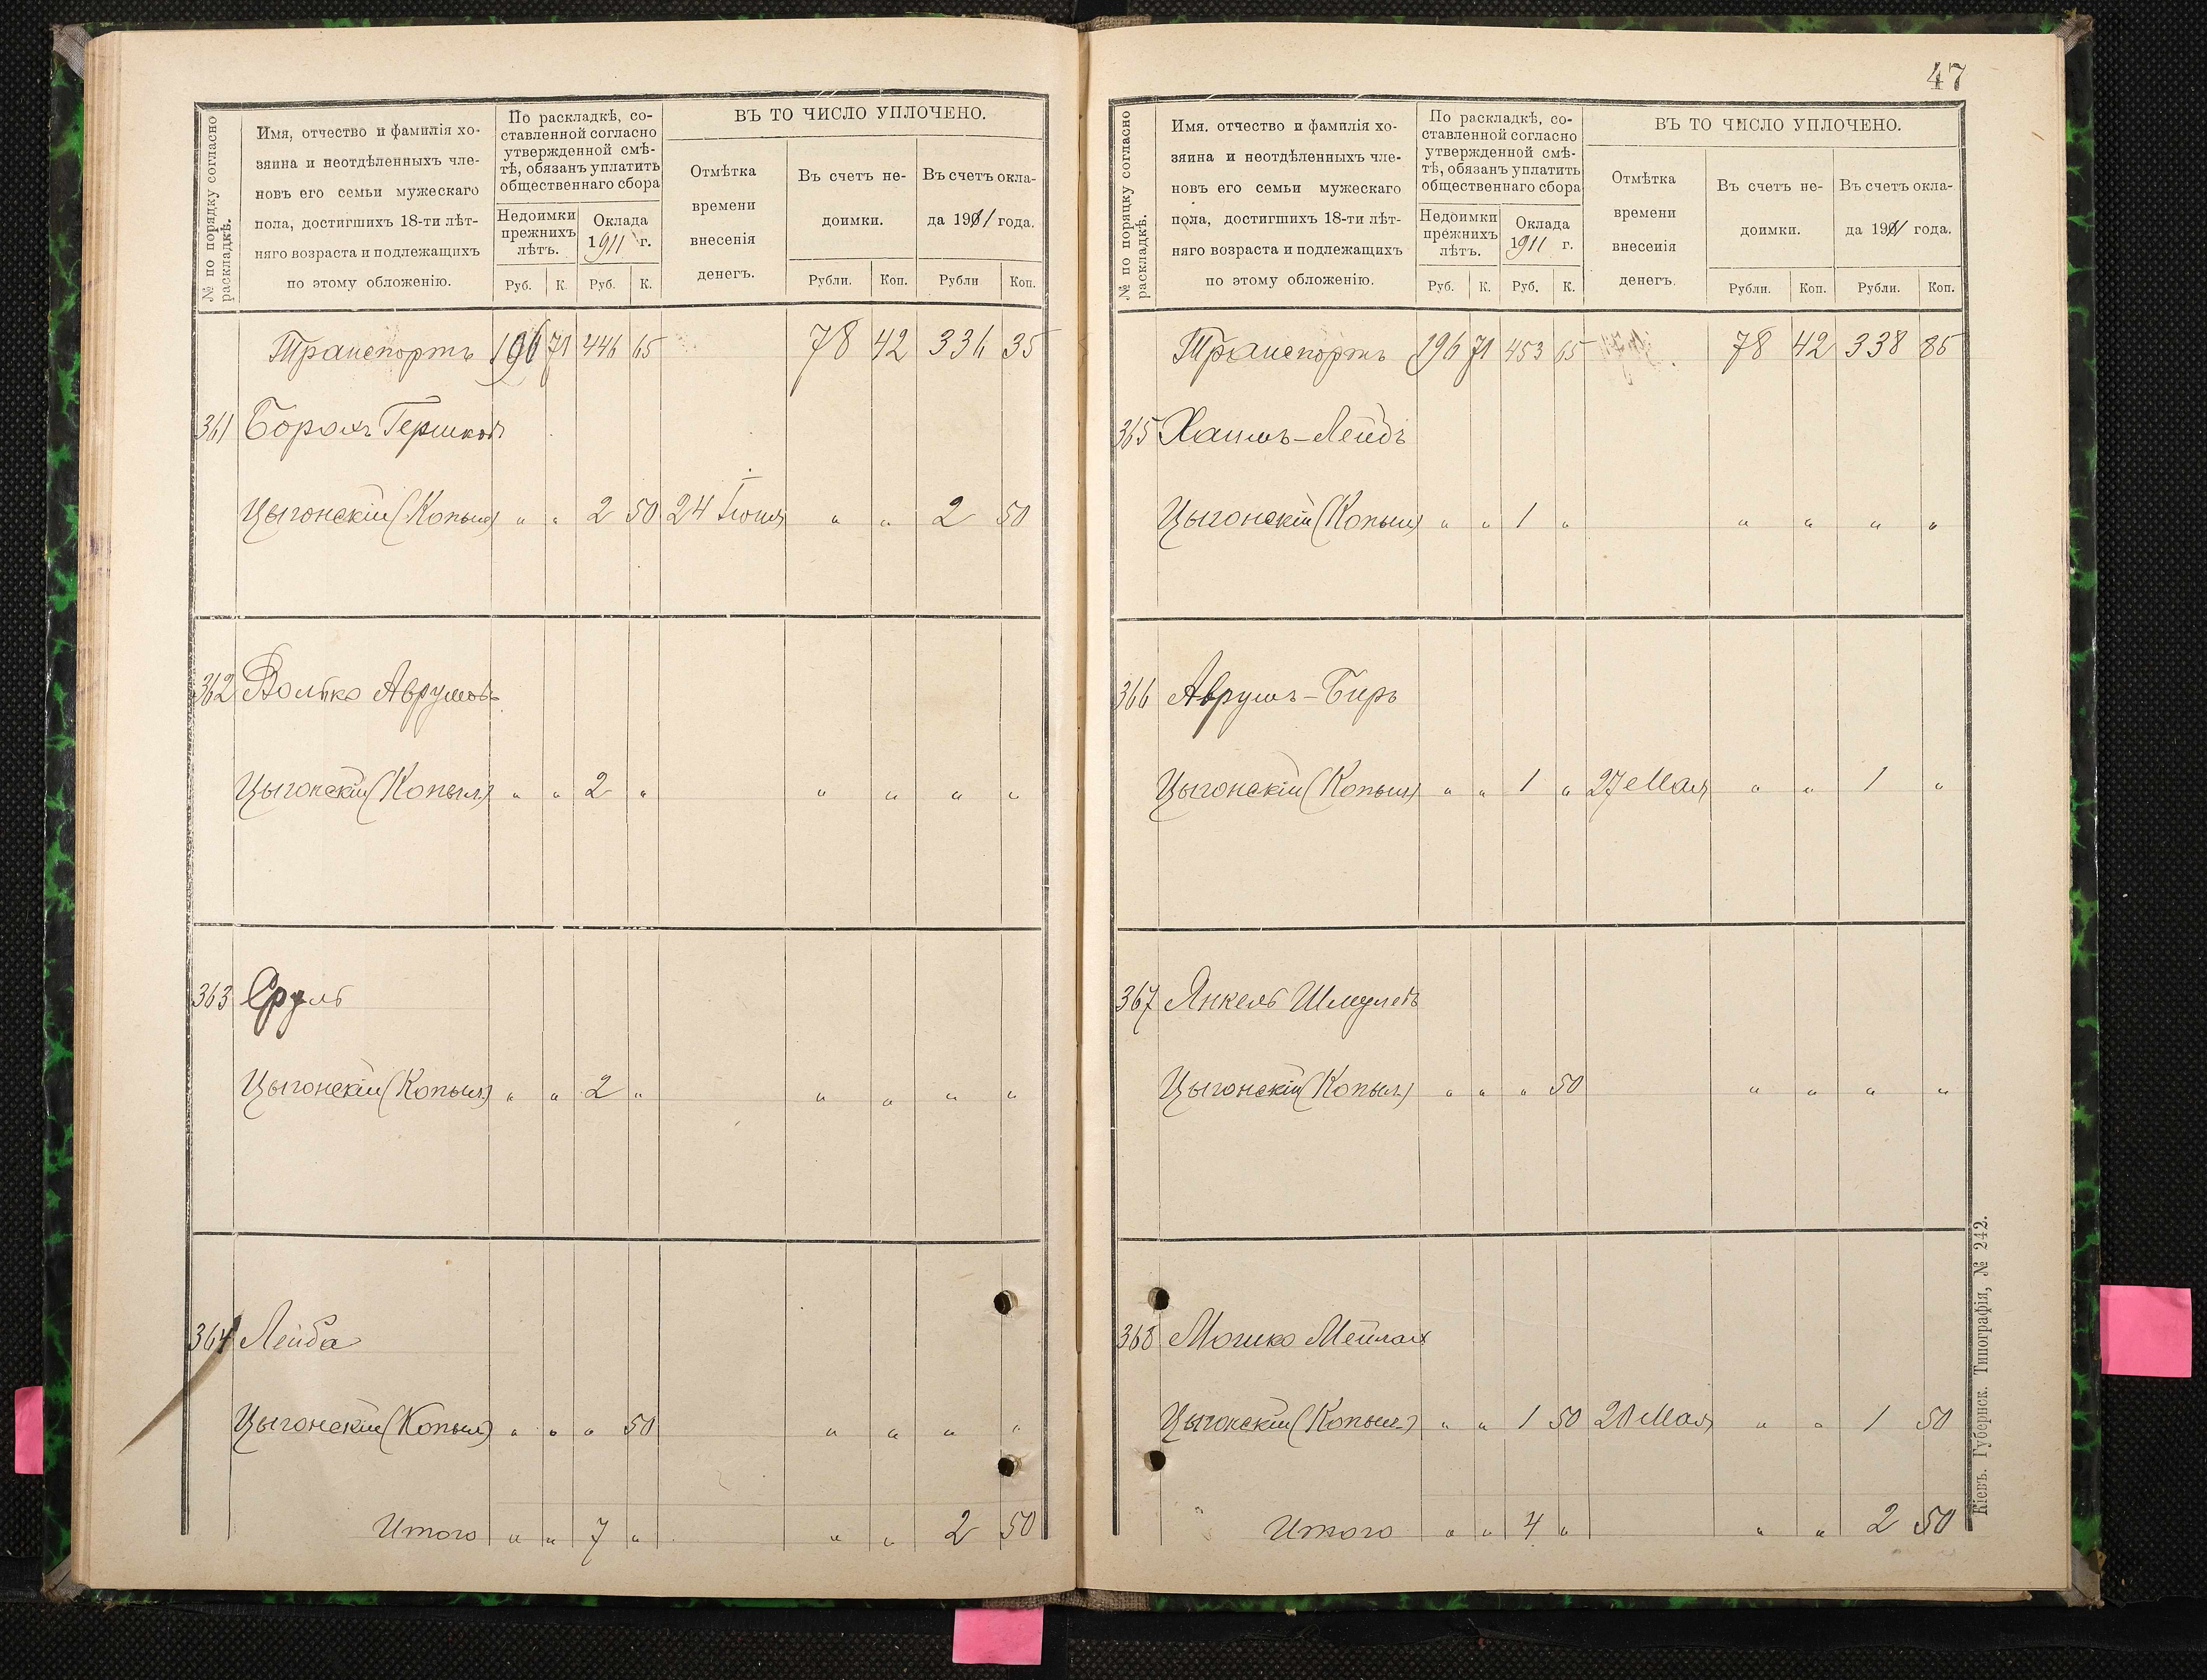 № по порядку согласно раскладкѣ.
Имя, отчество и фамилія хо-
зяина и неотдѣленныхъ чле-
новъ его семьи мужескаго
пола, достигшихъ 18-ти лѣт-
няго возраста и подлежащихъ
по этому обложенію.
По раскладкѣ, со-
ставленной согласно
утвержденной смѣ-
тѣ, обязанъ уплатить
общественнаго сбора
Недоимки
прежнихъ
лѣтъ.
Оклада
1911 г.
Руб. К. Руб. К.
ВЪ ТО ЧИСЛО УПЛОЧЕНО.
Отмѣтка
времени
внесенія
денегъ.
Въ счетъ не-
доимки.
Въ счетъ окла-
да 1911 года.
Рубли. Коп. Рубли Коп.
Транспортъ 196 71 446 65 78 42 336 35
361 Борохъ Гершковъ
Цыгонскій (Копыл) " " 2 50 24 Іюня " " 2 50
362 Волько Аврумовъ
Цыгонскій (Копыл.) " " 2 " " " " "
363 Сруль
Цыгонскій (Копыл.) " " 2 " " " " "
364 Лейба
Цыгонскій (Копыл) " " " 50 " " " "
Итого " " 7 " " " 2 50
47
№ по поряцку согласно раскладкѣ.
Имя. отчество и фамилія хо-
зяина и неотдѣленныхъ чле-
новъ его семьи мужескаго
пола, достигшихъ 18-ти лѣт-
няго возраста и подлежащихъ
по этому обложенію.
По раскладкѣ, со-
ставленной согласно
утвержденной смѣ-
тѣ, обязанъ уплатить
общественнаго сбора
Недоимки
прежнихъ
лѣтъ.
Оклада
1911 г.
Руб. К. Руб. К.
ВЪ ТО ЧИСЛО УПЛОЧЕНО.
Отмѣтка
времени
внесенія
денегъ.
Въ счетъ не-
доимки.
Въ счетъ окла-
да 1911 года.
Рубли. Коп. Рубли. Коп.
Транспортъ 196 71 453 65 78 42 338 85
365 Хаимъ-Лейбъ
Цыгонскій (Копыл) " " 1 " " " " "
366 Аврумъ-Биръ
Цыгонскій (Копыл) " " 1 " 27 Мая " " 1 "
367 Янкель Шмулевъ
Цыгонскій (Копыл.) " " " 50 " " " "
368 Мошко Мейлах
Цыгонскій (Копыл.) " " 1 50 20 Мая " " 1 50
Итого " " 4 " " " 2 50
Кіевъ. Губернск. Типографія, № 242.